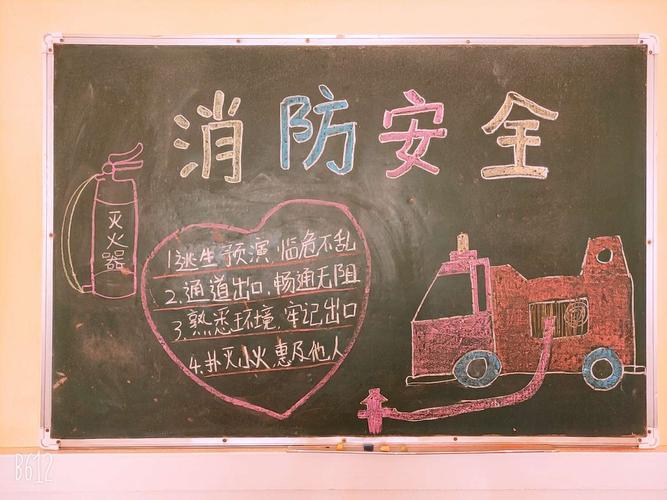 消防安全
灭火器
1.逃生预演,临危不乱
2.通道出口,畅通无阻
3.熟悉环境,牢记出口
4.扑灭小火惠及他人
B612